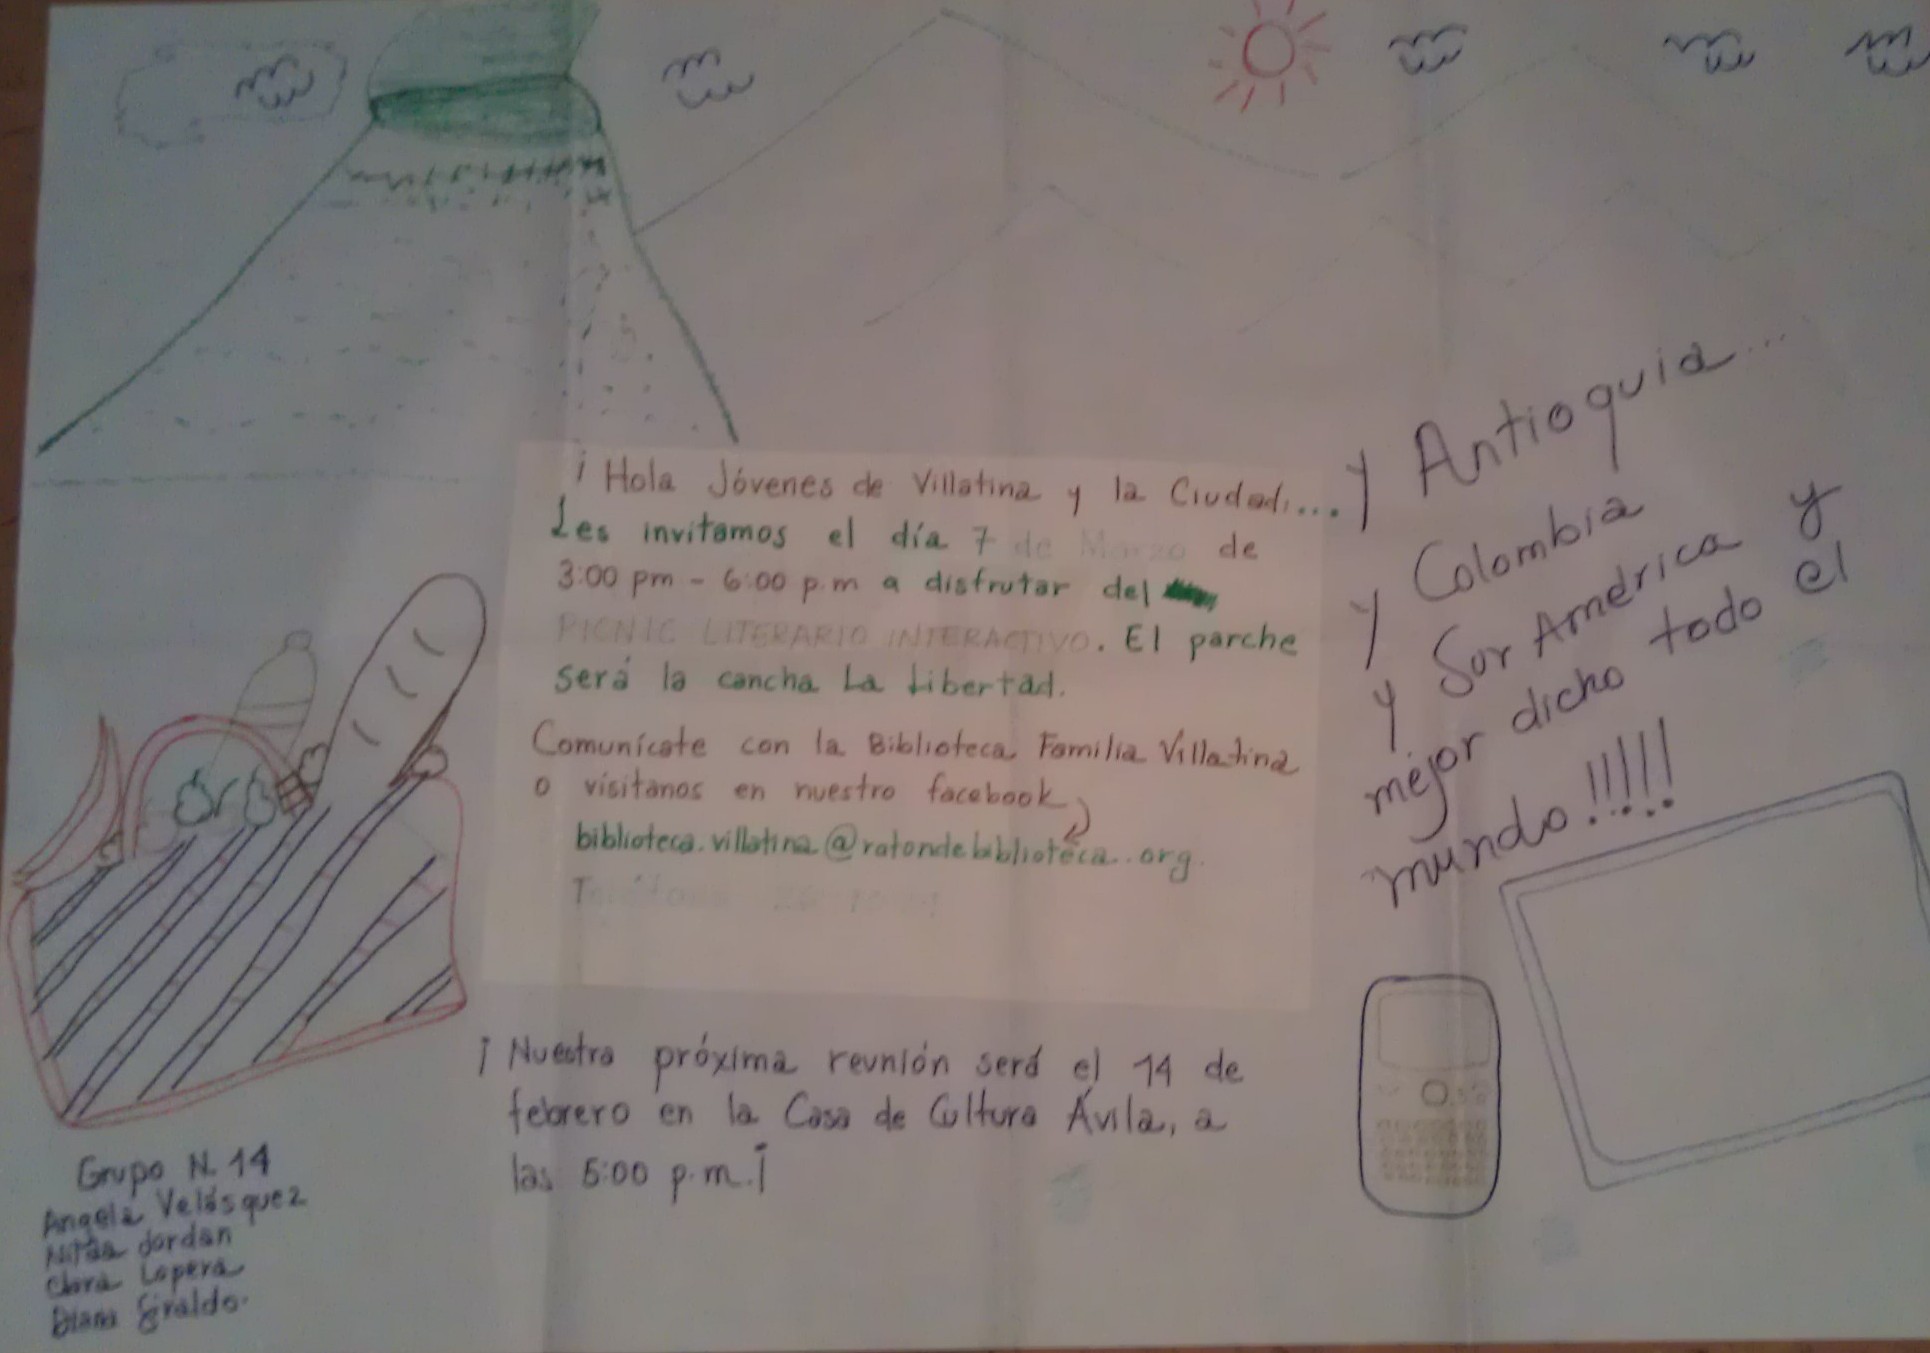 ¡Hola Jóvenes de Villatina y la Ciudad,...
Les invitamos el día 7 de Marzo de
3:00 pm - 6:00 p.m a disfrutar del
PICNIC LITERARIO INTERACTIVO. El parche
será la cancha La Libertad.
Comunícate con la Biblioteca Familia Villatina
o visítanos en nuestro facebook
biblioteca.villatina@ratondebiblioteca.org.
y Antioquia...
y Colombia
y Sur América y
mejor dicho todo el
mundo!!!!!
¡Nuestra próxima reunión será el 14 de
febrero en la Casa de Cultura Ávila, a
las 5:00 p.m.¡
Grupo N. 14
Angela Velásquez
Jordan
Clara Lopera
Diana Giraldo.